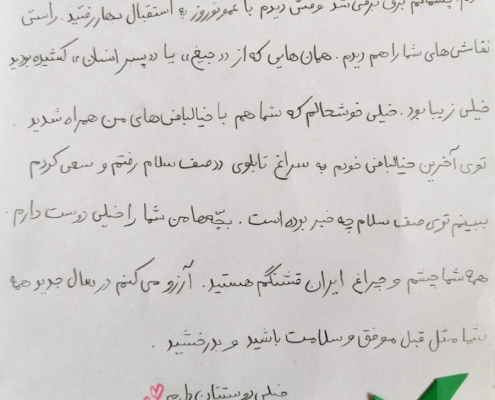 چشمانم برق برقی شد وقتی دیدم با عمو نوروز به استقبال بهار رفتید. راستی
نقاشی‌های شما را هم دیدم. همان‌هایی که از «جیغ» یا «پسر انسان» کشیده بودید
خیلی زیبا بود. خیلی خوشحالم که شما هم با خیالبافی‌های من همراه شدید.
توی آخرین خیالبافی خودم به سراغ تابلوی صف سلام رفتم و سعی کردم
ببینم توی صف سلام چه خبر بوده است. بچّه‌ها من شما را خیلی دوست دارم.
همه شما چشم و چراغ ایران قشنگم هستید. آرزو می‌کنم در سال جدید همه
شما مثل قبل موفق و سلامت باشید و بدرخشید.
خیلی دوستتان دارم